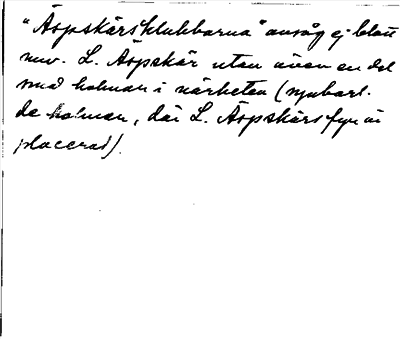 "Äspskärsklubbarna" avsåg ej blott
nuv. L. Äspskär utan även en del
små holmar i närheten (synbarl.
de holmar, där L. Äspskärs fyr är
placerad).